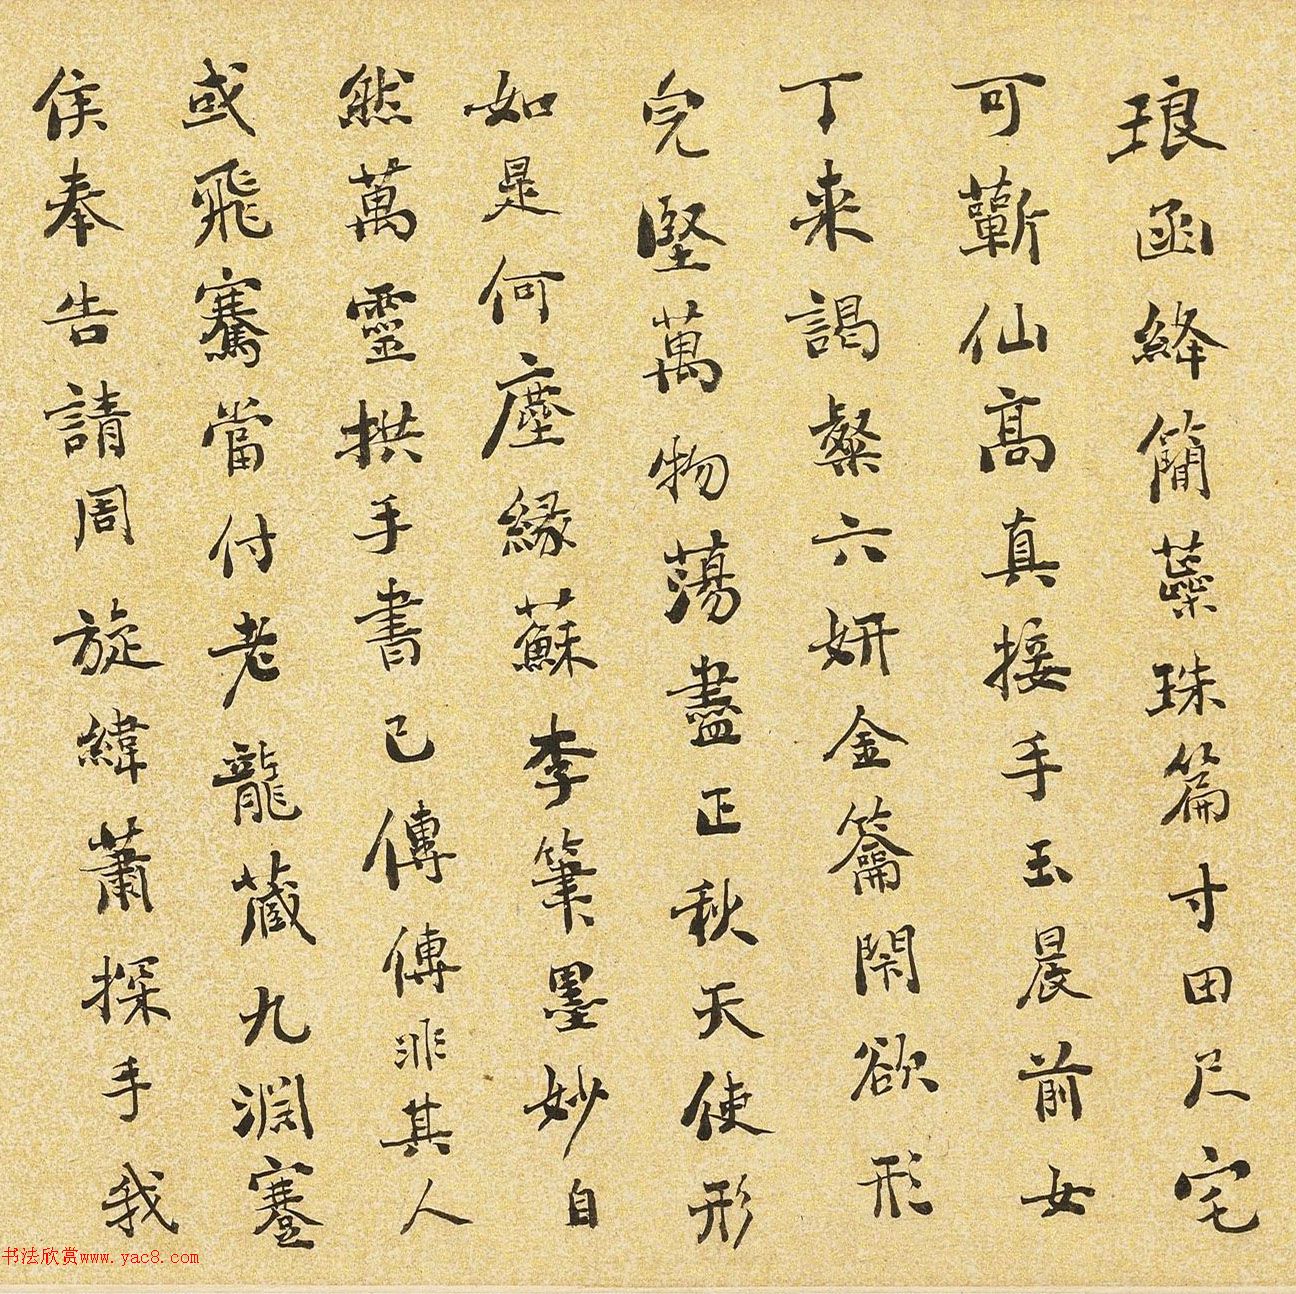 琅函絳簡蘂珠篇寸田尺宅
可蘄仙高真接手玉晨前女
丁来謁粲六妍金籥閇欲形
完堅萬物蕩盡正秋天使形
如是何塵緣蘇李筆墨妙自
然萬靈拱手書已傳傳非其人
或飛騫當付老龍藏九淵蹇
侯奉告請周旋緯蕭探手我
书法欣赏www.yac8.com